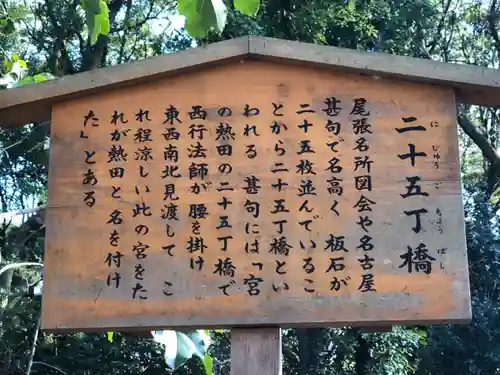 二十五丁橋
にじゅうごちょうばし
尾張名所図会や名古屋
甚句で名高く 板石が
二十五枚並んでいるこ
とから二十五丁橋とい
われる 甚句には「宮
の熱田の二十五丁橋で
西行法師が腰を掛け
東西南北見渡して こ
れ程涼しい此の宮をた
れが熱田と名を付け
た」とある